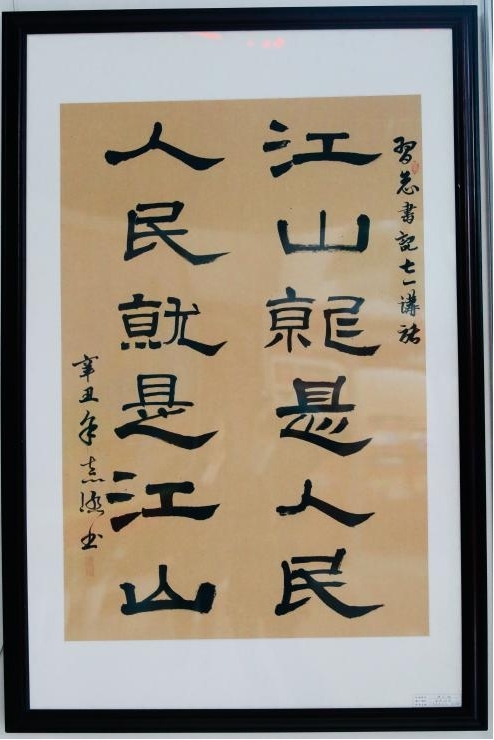 习总书记七一讲话
江山就是人民
人民就是江山
辛丑年志强书